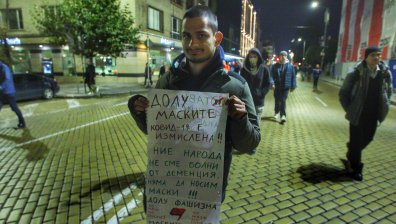 ДОЛУ
МАСКИТЕ
КОВИД-19 Е
ИЗМИСЛЕНА!!
НИЕ НАРОДА
НЕ СМЕ БОЛНИ
ОТ ДЕМЕНЦИЯ,
НЯМА ДА НОСИМ
МАСКИ !!!
ДОЛУ ФАШИЗМА